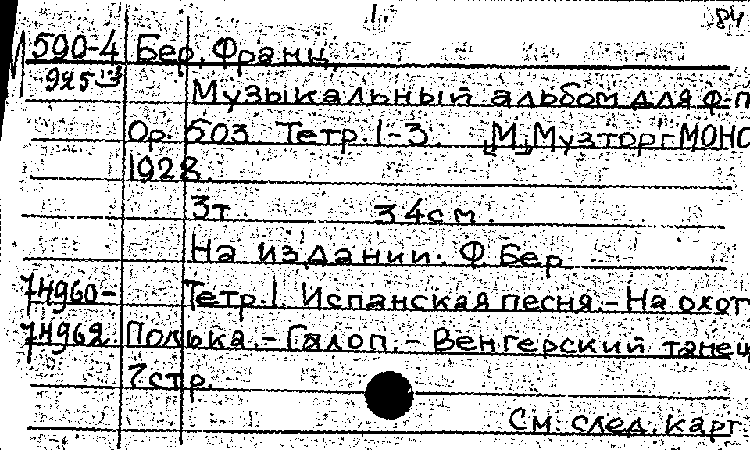 1. 84
М 500-4 Бер, Франц.
925 Музыкальный альбом для ф-п
Ор. 503. Тетр. 1-3. [М.] Музторг МОНО
1928.
3т. 34см.
На издании: Ф. Бер
7H960- Тетр. 1. Испанская песня. - На охот
7H962. Полька. - Галоп. - Венгерский танец
7 стр.
См. след. карт.